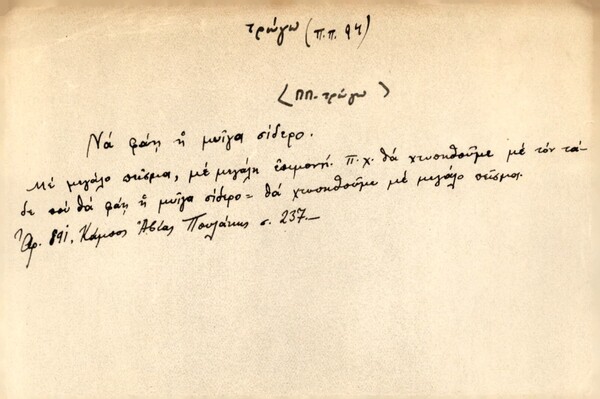 τρώγω (π.π. 94)
<ΠΠ-τρώγω>
Νά φάη ἡ μυῖγα σίδερο.
Μέ μεγάλο πεῖσμα, μέ μεγάλη ἐπιμονή. π.χ. θά χτυπηθοῦμε μέ τόν τά-
δε πού θά φάη ἡ μυῖγα σίδερο = θά χτυπηθοῦμε μέ μεγάλο πεῖσμα.
Ἀρ. 891, Κάμπος Ἀβίας Πουλάκης σ. 237.—